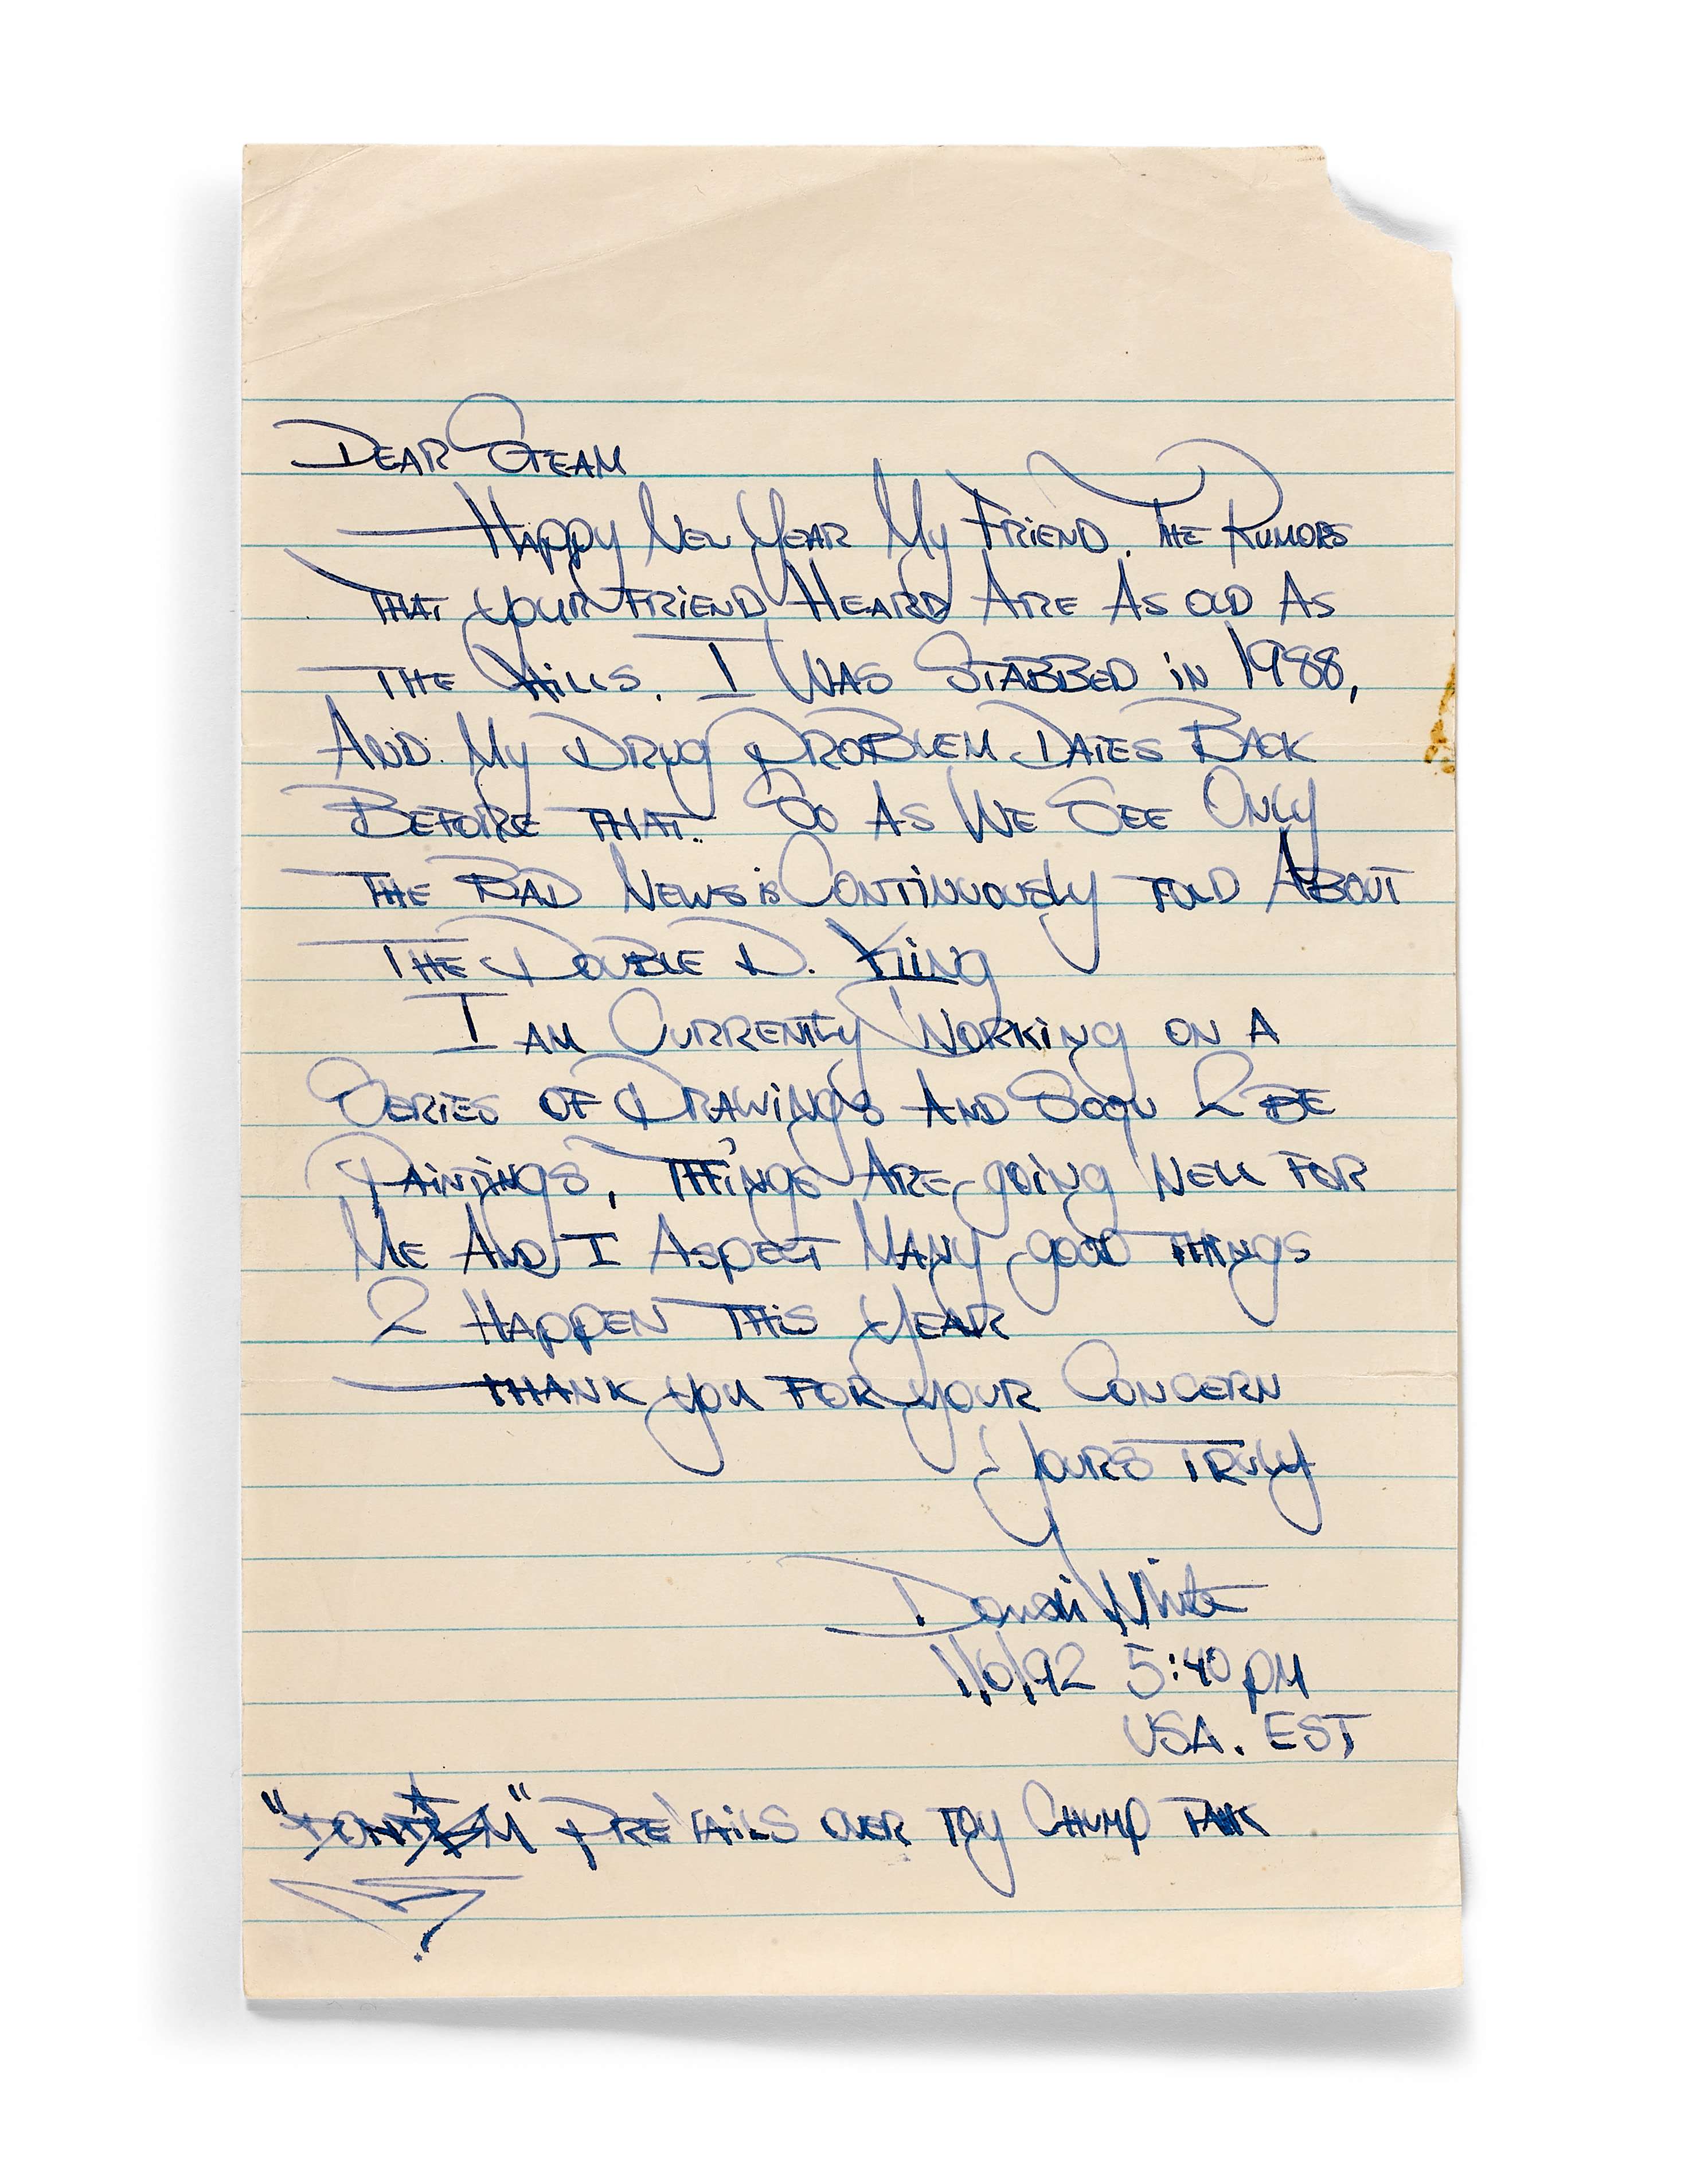 DEAR STEAM
HAPPY NEW YEAR MY FRIEND. THE RUMORS
THAT YOUR FRIEND HEARD ARE AS OLD AS
THE HILLS. I WAS STABBED IN 1988,
AND MY DRUG PROBLEM DATES BACK
BEFORE THAT. SO AS WE SEE ONLY
THE BAD NEWS IS CONTINUOUSLY TOLD ABOUT
THE DOUBLE D. KING
I AM CURRENTLY WORKING ON A
SERIES OF DRAWINGS AND SOON 2 BE
PAINTINGS, THINGS ARE GOING WELL FOR
ME AND I ASPECT MANY GOOD THINGS
2 HAPPEN THIS YEAR
THANK YOU FOR YOUR CONCERN
YOURS TRULY
Dondi White
1/6/92 5:40 PM
USA. EST
PREVAILS OVER TOY CHUMP TALK